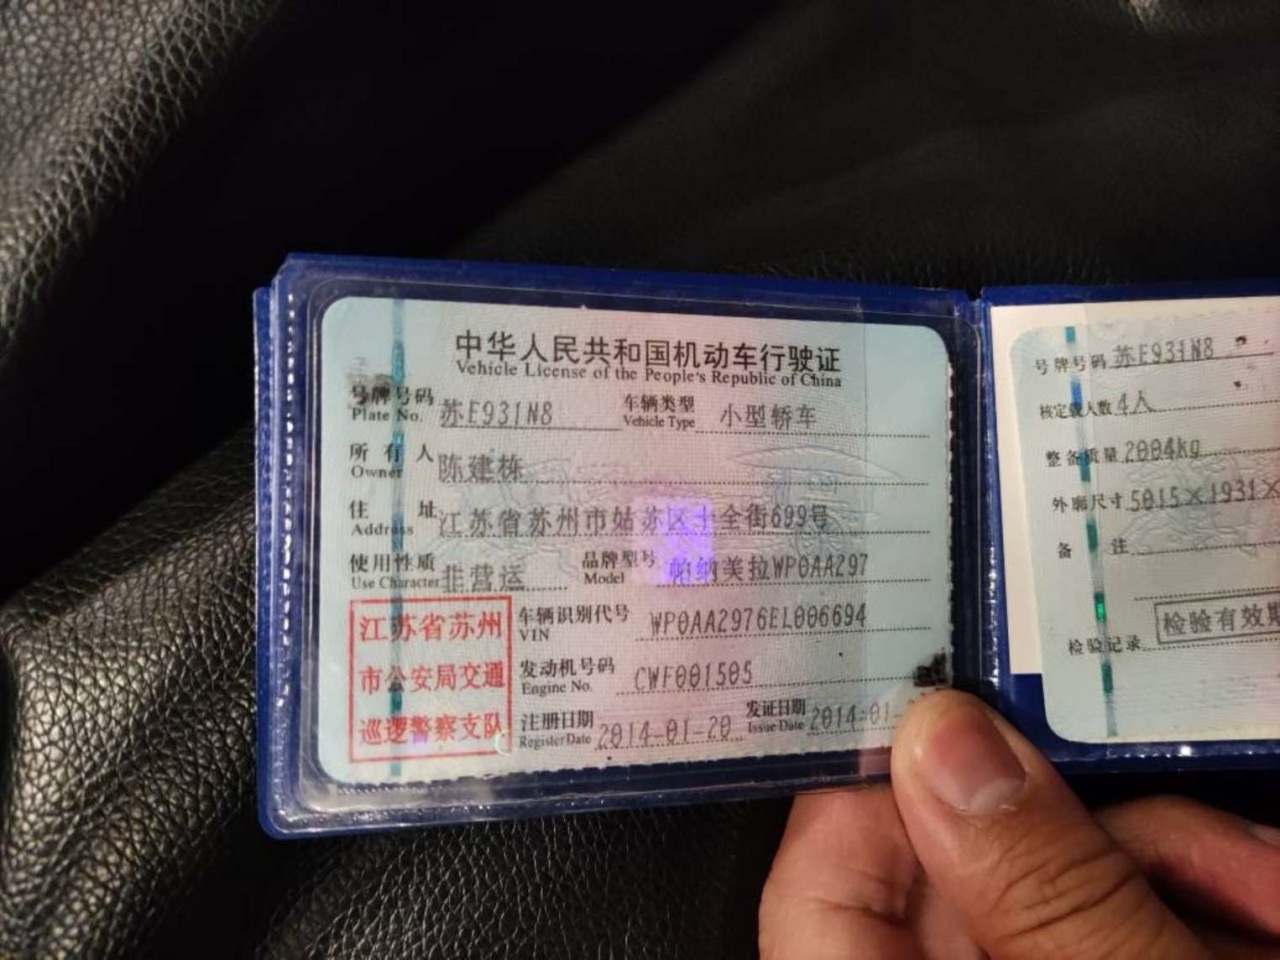 中华人民共和国机动车行驶证
Vehicle License of the People's Republic of China
号牌号码 苏E931N8 车辆类型 小型轿车
Plate No. Vehicle Type
所有人 陈建栋
Owner
住址 江苏省苏州市姑苏区十全街699号
Address
使用性质 非营运 品牌型号 帕纳美拉WP0AA297
Use Character Model
江苏省苏州
市公安局交通
巡逻警察支队
车辆识别代号 WP0AA2976EL006694
VIN
发动机号码 CWF001505
Engine No.
注册日期 2014-01-20 发证日期 2014-01-
Register Date Issue Date
号牌号码 苏E931N8
核定载人数 4人
整备质量 2004kg
外廓尺寸 5015×1931×
备注
检验有效期
检验记录